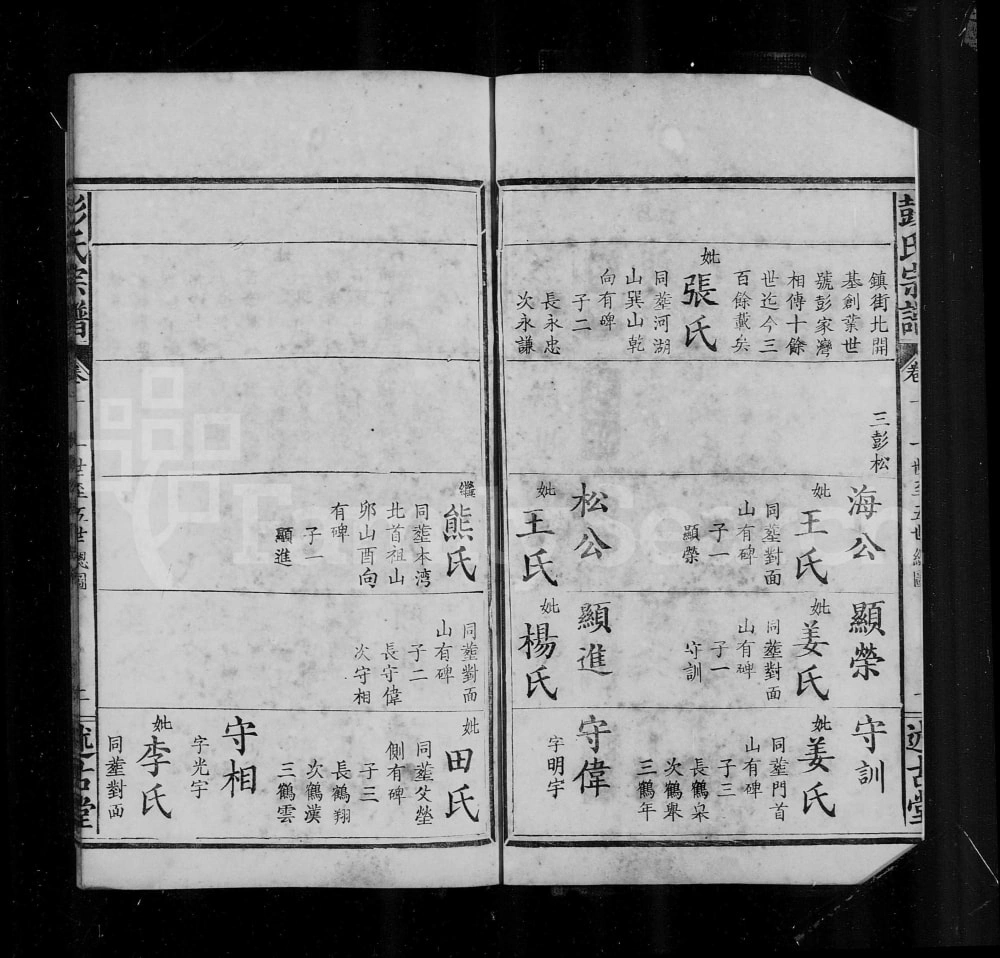 彭氏宗譜
卷一
一世至五世總圖
一
述古堂
鎮街北開
基創業世
號彭家灣
相傳十餘
世迄今三
百餘載矣
妣張氏
同塟河湖
山巽山乾
向有碑
子二
長永忠
次永謙
三彭松
海公
妣王氏
同塟對面
山有碑
子一
顯榮
松公
妣王氏
顯榮
妣姜氏
同塟對面
山有碑
子一
守訓
顯進
妣楊氏
守訓
妣姜氏
同塟門首
山有碑
子三
長鶴皋
次鶴舉
三鶴年
守偉
字明宇
繼熊氏
同塟本湾
北首祖山
卯山酉向
有碑
子一
顯進
同塟對面
山有碑
子二
長守偉
次守相
妣田氏
同塟父塋
側有碑
子三
長鶴翔
次鶴漢
三鶴雲
守相
字光宇
妣李氏
同塟對面
彭氏宗譜
卷一
一世至五世總圖
二
述古堂